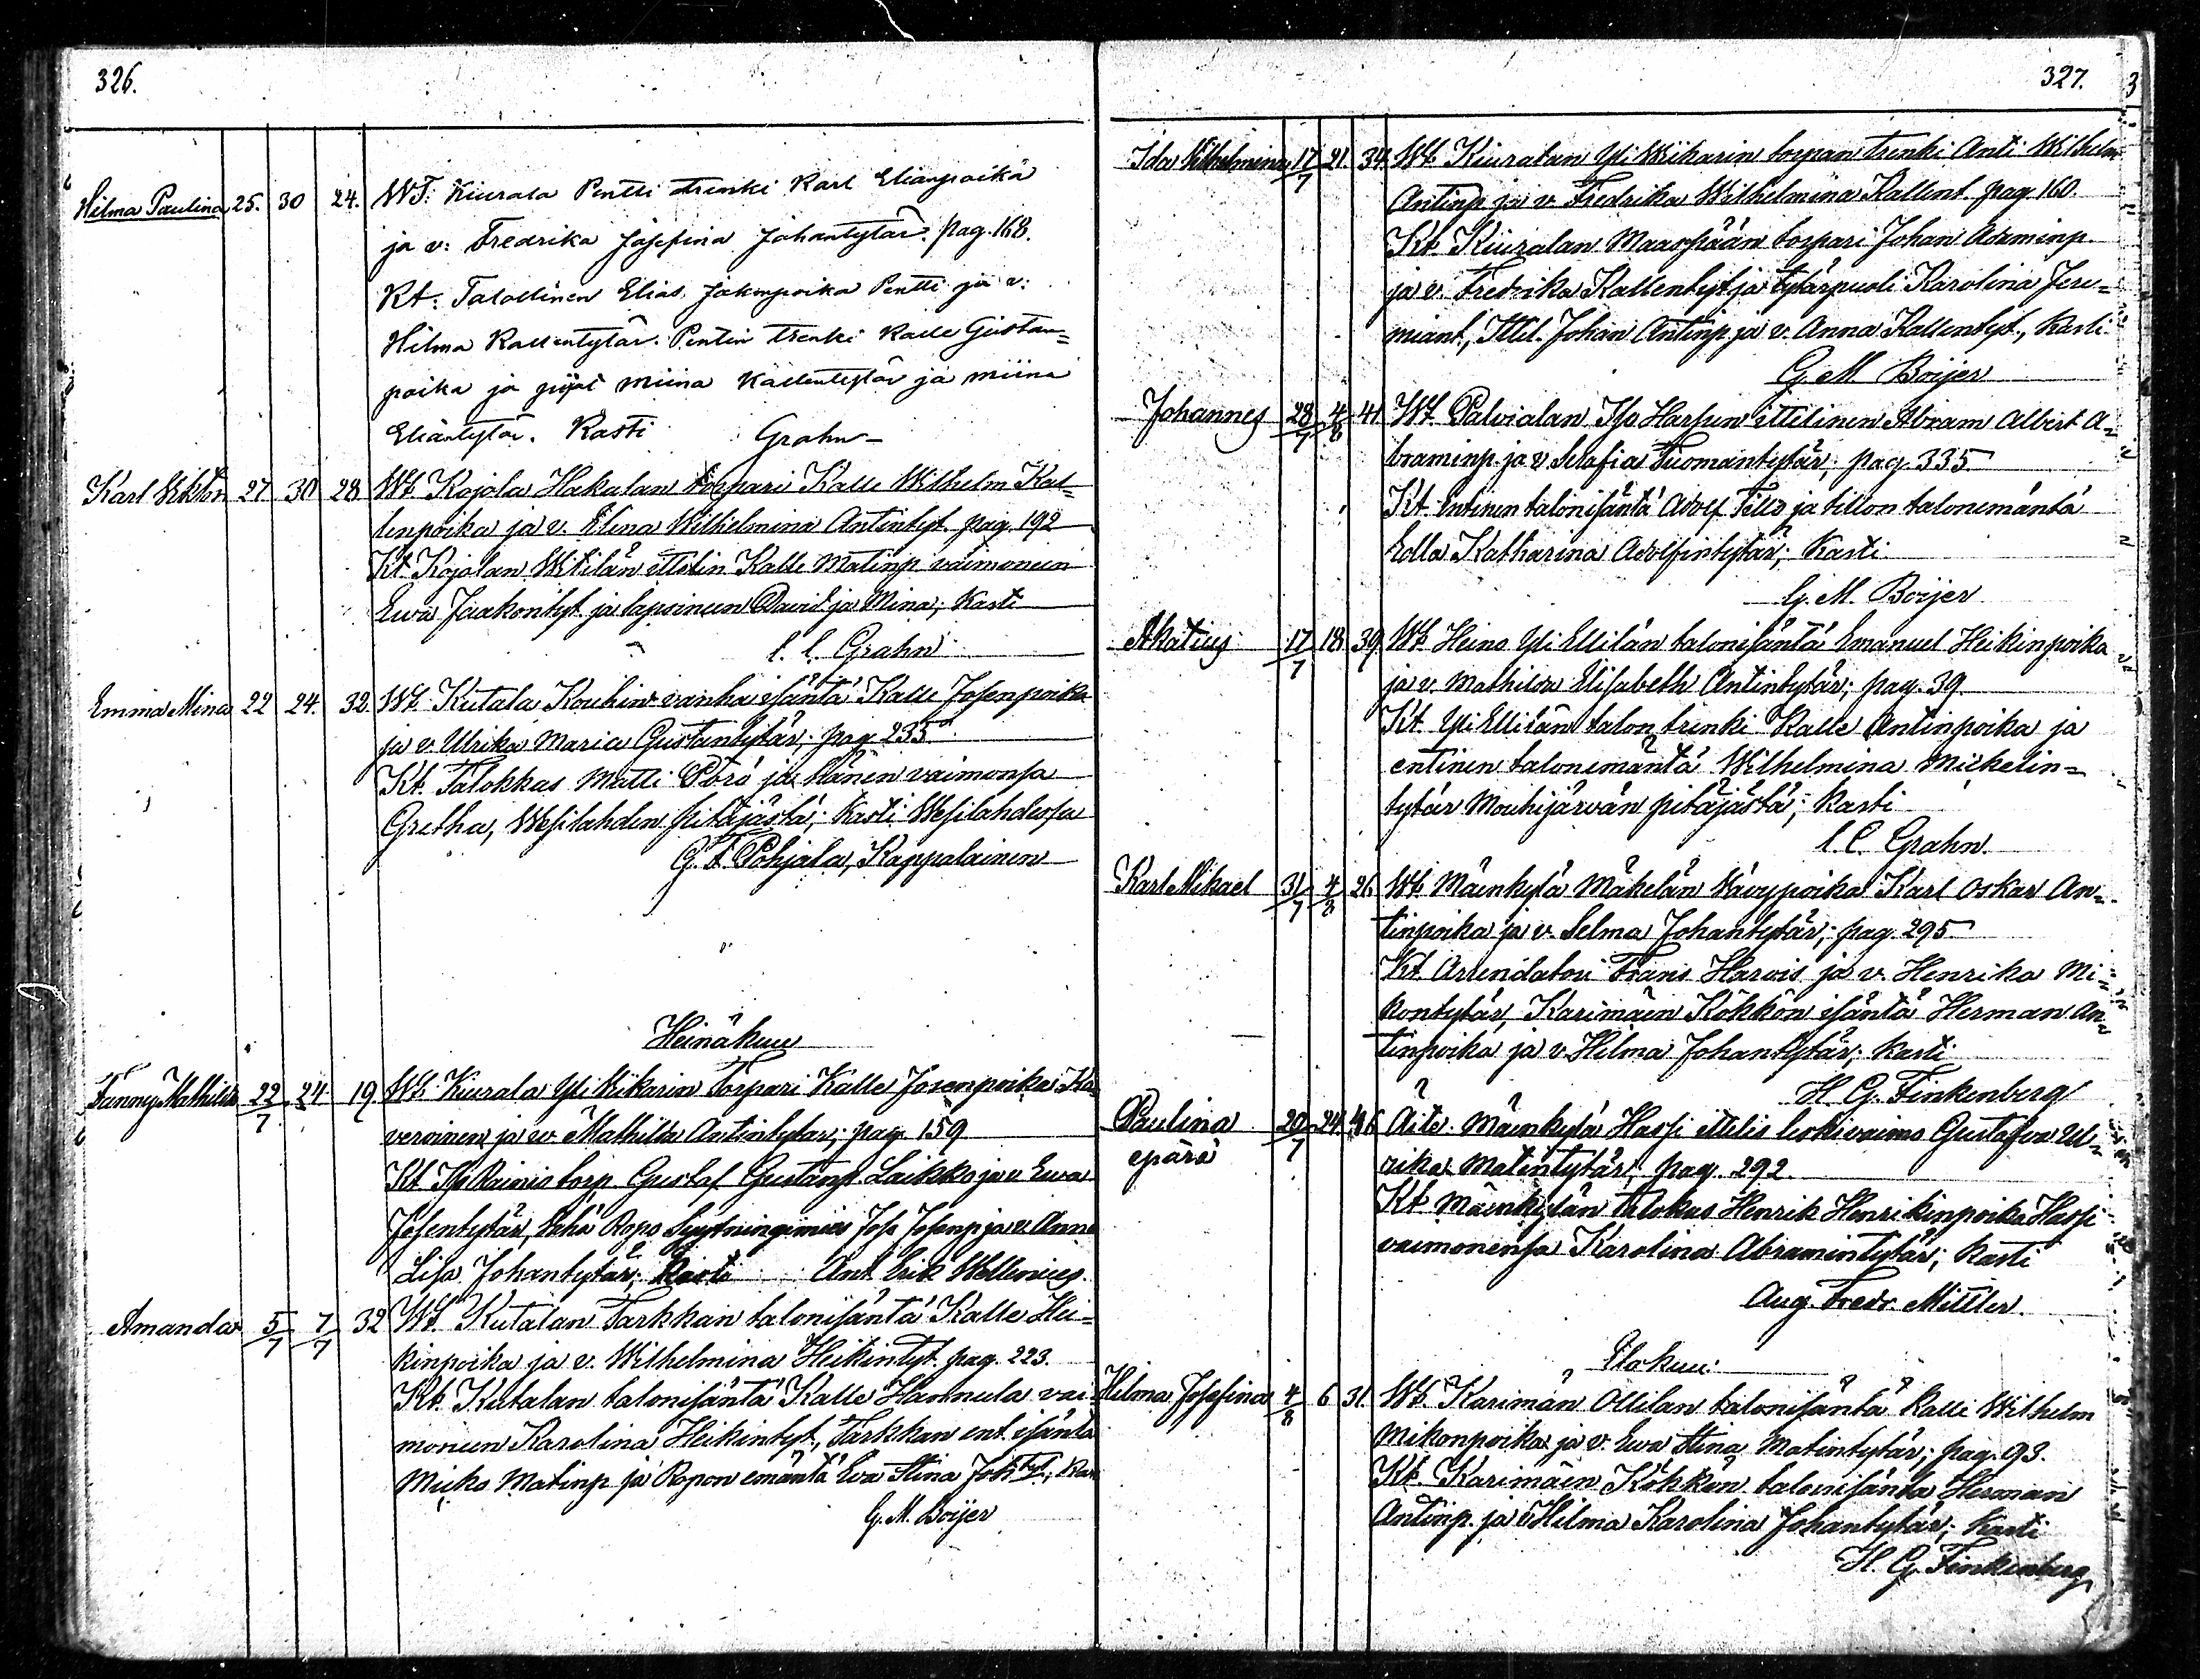 326.
Hilma Paulina 25. 30 24. WT: Kiurala Pentti trenki Karl Elianpoika
ja v: Fredrika Josefina Johantytär. pag. 168.
Kt: Talollinen Elias Jakinpoika Pentti ja v:
Hilma Kallentytär. Pentin trenki Kalle Gustan=
poika ja piijat Miina Kallentytär ja Miina
Eliantytär. Kasti Grahn
Karl Viktor 27 30 28 Wt. Kojola Hakalan torpari Kalle Wilhelm Kal=
lenpoika ja v. Elena Wilhelmina Antintyt. pag. 192
Kt. Kojolan Witilän ittelin Kalle Matinp vaimoneen
Ewa Jaakontyt. ja lapsineen David ja Mina; Kasti
C. C. Grahn
Emma Mina 22 24. 32. Wt. Kutala Kouhin vanha isäntä Kalle Josenpoika
ja v. Ulrika Maria Gustantytär; pag 235
Kt. Talokkas Matti Pörö ja hänen vaimonsa
Gretha, Wesilahden pitäjästä; Kasti Wesilahdessa
G. F. Pohjala, Kappalainen
Heinäkuu
Fanny Mathilda 22/7 24 19. Wt. Kiurala Yli Kikarin Torpari Kalle Josenpoika Ka
veroinen ja w. Mathilda Antintytar; pag. 159
Kt. Iso Rainio torp. Gustaf Gustanp. Laikko ja v. Ewa
Josentytär, Vähä Ropo Syytningimies Jose Josenp ja v. Anna
Lisa Johantytär; Kasti Ant. Erik Wallenius.
Amanda 5/7 7/7 32 Wt. Kutalan Tarkkan talonisäntä Kalle Hei=
kinpoika ja v. Wilhelmina Heikintyt. pag. 223.
Kt. Kutalan talonisäntä Kalle Hannula vai
moneen Karolina Heikintyt, Tarkkan ent. isäntä
Micko Matinp ja Ropon emäntä Eva Stina Joh:tyt; Kas
G. M. Boijer
327.
Ida Wilhelmina 17/7 21. 34. Wt. Kiuralan Yli Wikarin torpan trenki Anti Wilhelm
Antinp ja v. Fredrika Wilhelmina Kallent. pag. 160.
Kt. Kiuralan Maaspään torpari Johan Adaminp.
ja v. Fredrika Kallentyt ja tytärpuoli Karolina Jere=
miant, Ittel. Johan Antinp ja v. Anna Kallentyt., Kasti
G. M. Boijer
Johannes 28/7 4/8 41 Wt. Palvialan Iso Harjun ittelinen Abram Albert A=
braminp. ja v Serafia Tuomantytär; pag. 335
Kt. Entinen talonisäntä Adolf Tillo ja tillon talonemäntä
Edla Katharina Adolfintytär; Kasti
G. M. Boijer
Akatius 17/7 18. 39. Wt. Heino Yli Ellilän talonisäntä Emanuel Heikinpoika
ja v. Mathilda Elisabeth Antintytär; pag. 39.
Kt. Yli Ellilän talon trenki Kalle Antinpoika ja
entinen talonemäntä Wilhelmina Mickelin=
tytär Mouhijärvän pitäjästä; Kasti
C. C. Grahn.
Karl Mikael 31/7 4/8 26. Wt. Mäenkylä Mäkelän Vävypoika Karl Oskar An=
tinpoika ja v. Selma Johantytär; pag. 295
Kt. Arrendatori Frans Harvis ja v. Henrika Mi=
kontytär, Karimäen Kökkön isäntä Herman An=
tinpoika ja v Hilma Johantytär; Kasti
H. G. Finkenberg
Paulina 20/7 24 46 Äite. Mäenkylä Hassi ittelis leskivaimo Gustafva Ul=
epärä
rika Matintytär; pag. 292.
Kt Mäenkylän talokas Henrik Henrikinpoika Hassi
vaimonensa Karolina Abramintytär; Kasti
Aug. Fredr. Mittler.
Elokuu:
Hilma Josefina 4/8 6 31. Wt. Karimän Ollilan talonisäntä Kalle Wilhelm
Mikonpoika ja v. Ewa Stina Matintytär; pag. 93.
Kt. Karimäen Kökkön talonisäntä Herman
Antinp. ja v Hilma Karolina Johantytär; Kasti
H. G. Finkenberg